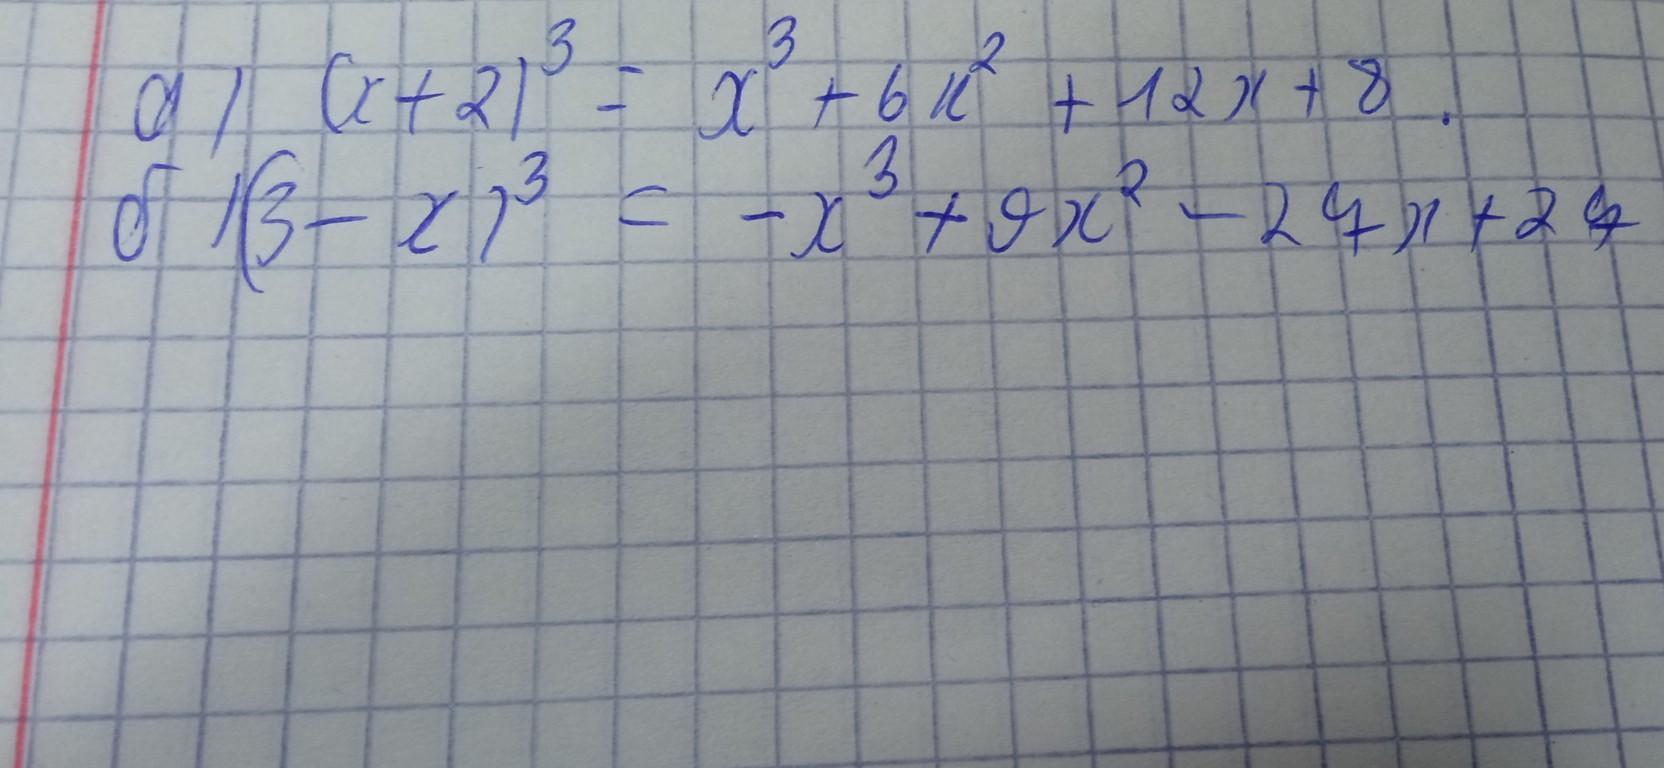 а) (x+2)³ = x³ + 6x² + 12x + 8.
б) (3 - x)³ = -x³ + 9x² - 27x + 27